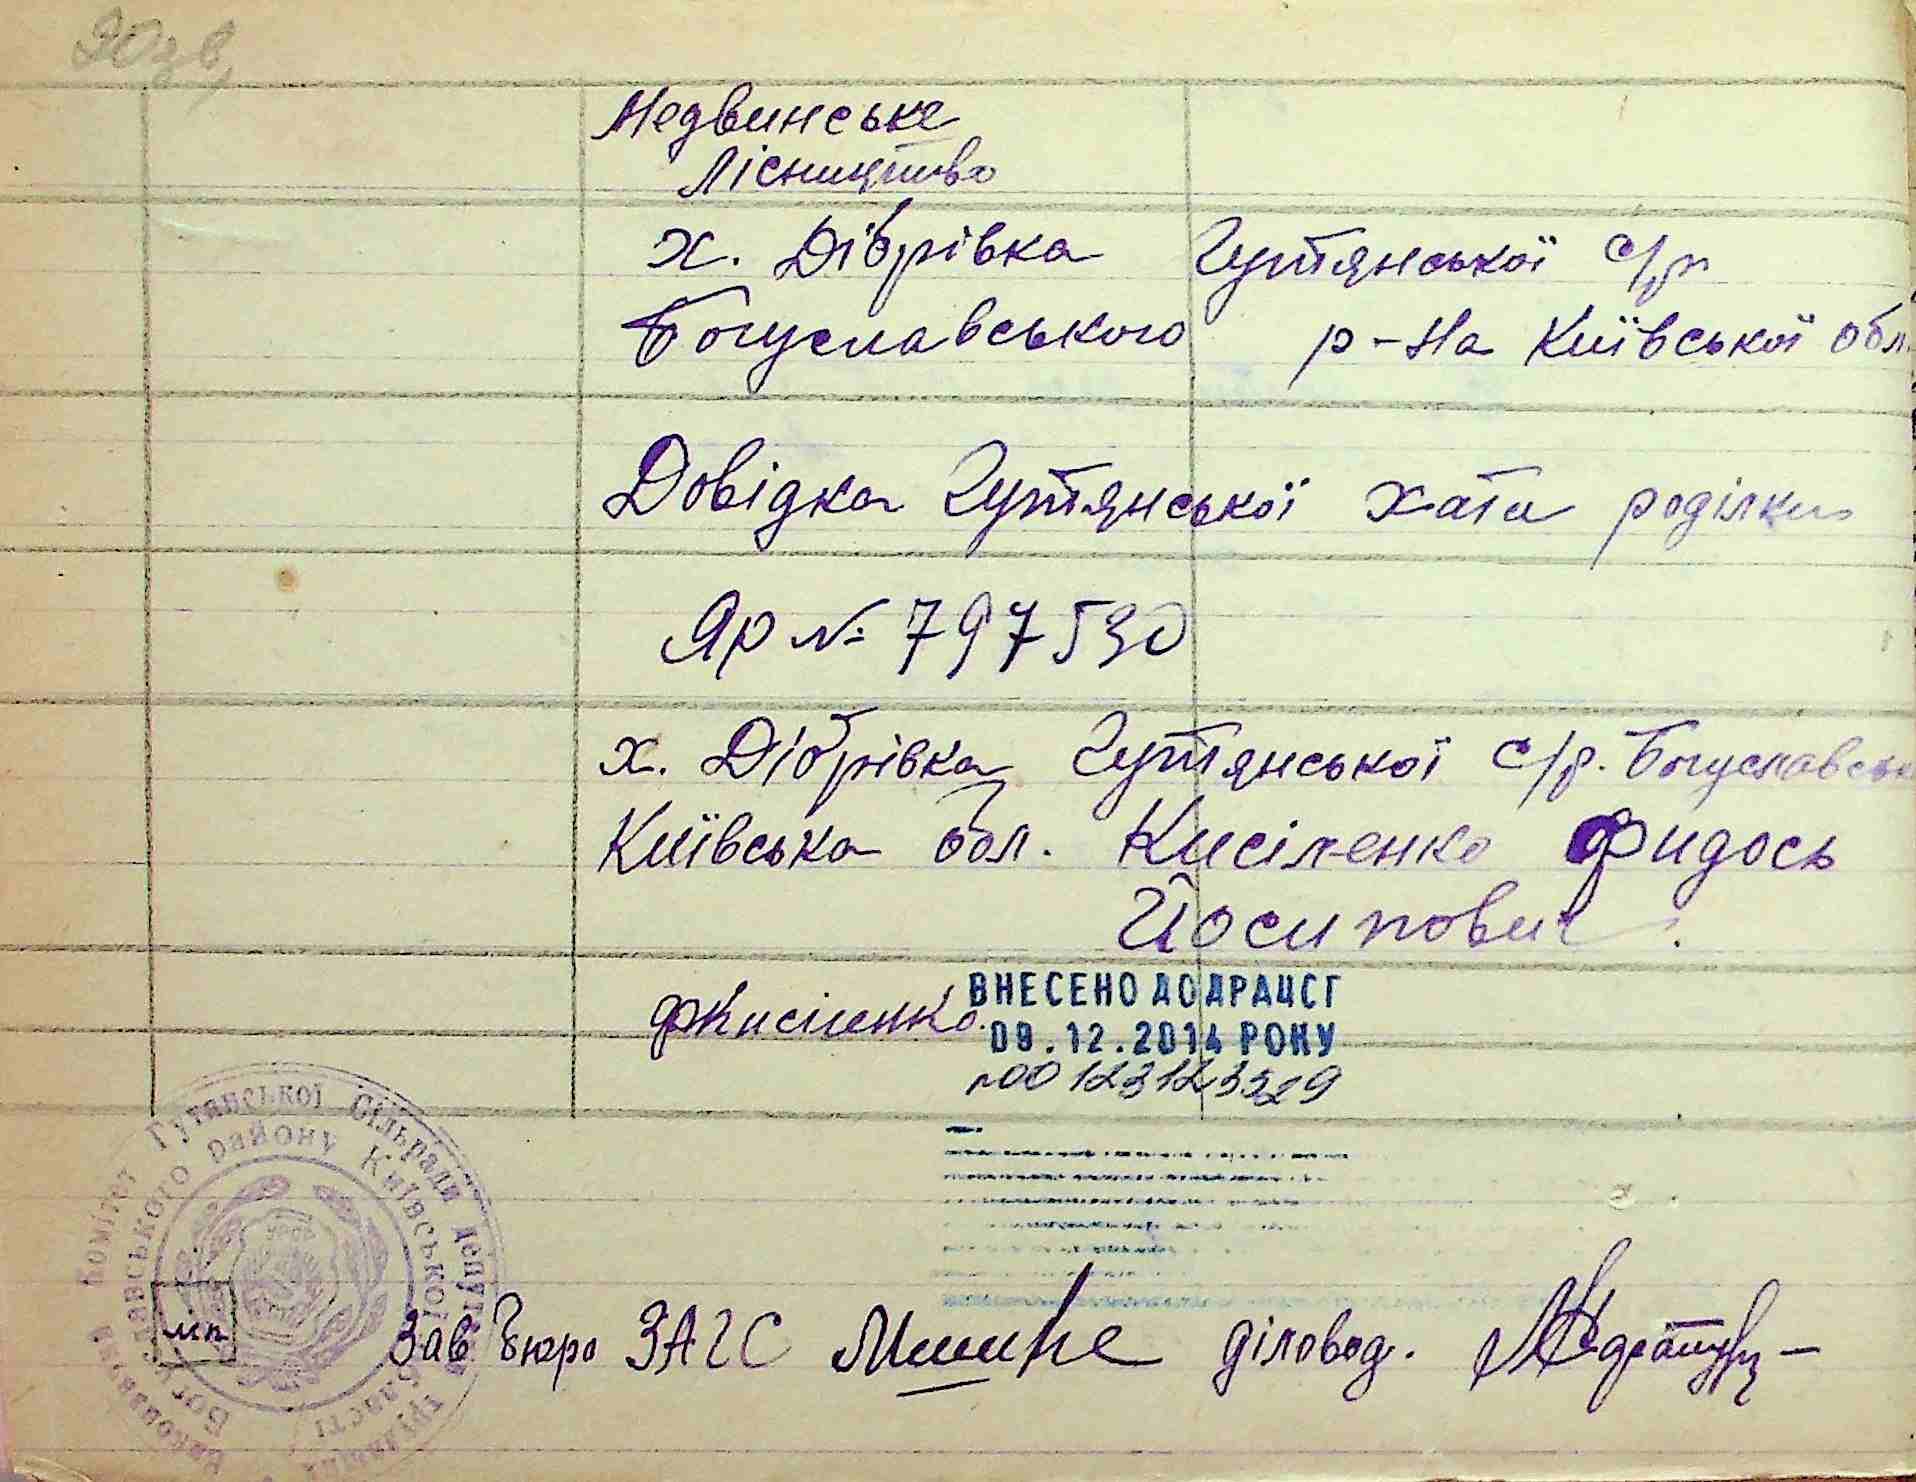 30 зв,
Медвинське
Лісництво
х. Дібрівка Гутянської с/р
Богуславського р-на Київської обл.
Довідка Гутянської хата роділки
Яр № 797530
х. Дібрівка Гутянської с/р. Богуславськ
Київська обл. Кисіленко Фидось
Йосипович.
ФКисіленко.
ВНЕСЕНО ДО ДРАЦСГ
09.12.2014 РОКУ
00123123529
Комітет Гутянської Сільради депутатів трудящих
Богуславського району Київської області
мп
Зав Бюро ЗАГС діловод.